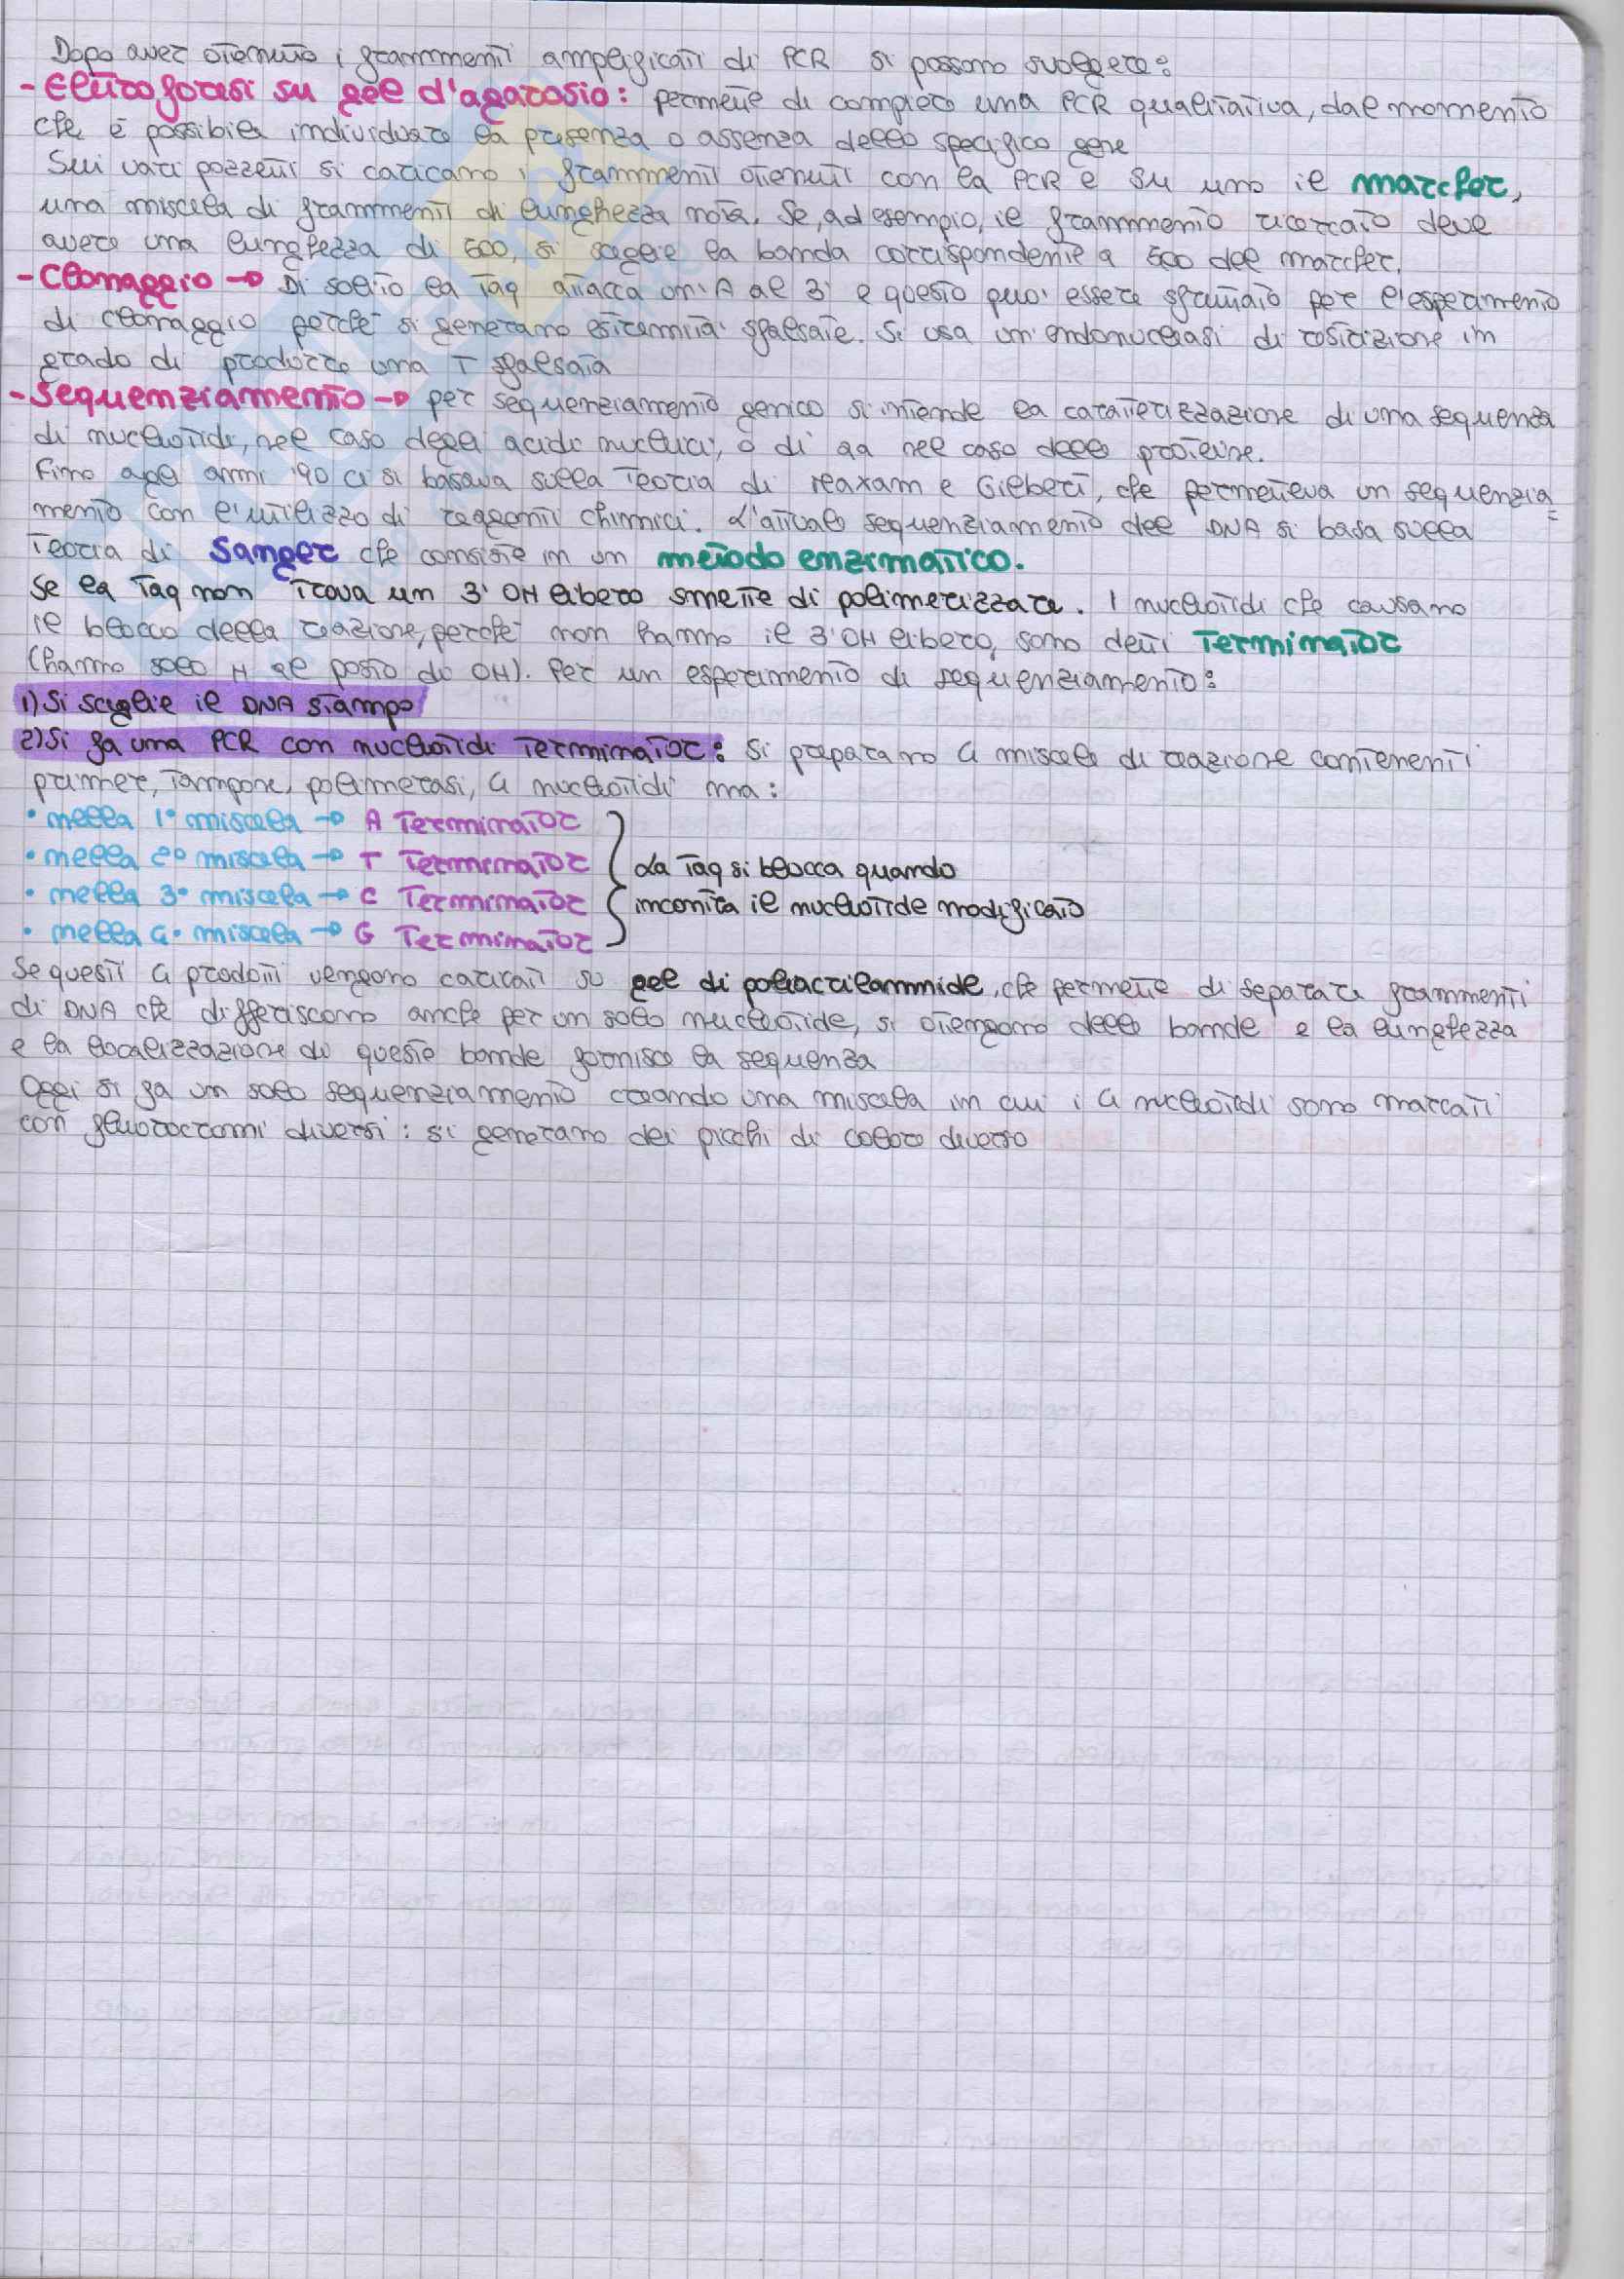 Dopo aver ottenuto i frammenti amplificati di PCR si possono svolgere:
- Elettroforesi su gel d'agarosio: permette di compiere una PCR qualitativa, dal momento
che è possibile individuare la presenza o assenza dello specifico gene
Sui vari pozzetti si caricano i frammenti ottenuti con la PCR e su uno il marcher,
una miscela di frammenti di lunghezza nota. Se, ad esempio, il frammento ricercato deve
avere una lunghezza di 500, si sceglie la banda corrispondente a 500 del marcher.
- Clonaggio → Di solito la Taq attacca un'A al 3' e questo puo' essere sfruttato per l'esperimento
di clonaggio perche' si generano estremita' sfalsate. Si usa un'endonucleasi di restrizione in
grado di produrre una T sfalsata
- Sequenziamento → per sequenziamento genico si intende la caratterizzazione di una sequenza
di nucleotidi, nel caso degli acidi nucleici, o di aa nel caso delle proteine.
Fino agli anni '90 ci si basava sulla Teoria di Maxam e Gilbert, che permetteva un sequenzia=
mento con l'utilizzo di reagenti chimici. L'attuale sequenziamento del DNA si basa sulla
Teoria di Sanger che consiste in un metodo enzimatico.
Se la Taq non trova un 3' OH libero smette di polimerizzare. I nucleotidi che causano
il blocco della reazione, perche' non hanno il 3' OH libero, sono detti Terminator
(hanno solo H al posto di OH). Per un esperimento di sequenziamento:
1) Si sceglie il DNA stampo
2) Si fa una PCR con nucleotidi Terminator: si preparano 4 miscele di reazione contenenti
primer, Tampone, polimerasi, 4 nucleotidi ma:
• nella 1° miscela → A Terminator
• nella 2° miscela → T Terminator
• nella 3° miscela → C Terminator
• nella 4° miscela → G Terminator
La Taq si blocca quando
incontra il nucleotide modificato
Se questi 4 prodotti vengono caricati su gel di poliacrilammide, che permette di separare frammenti
di DNA che differiscono anche per un solo nucleotide, si ottengono delle bande e la lunghezza
e la localizzazione di queste bande fornisce la sequenza
Oggi si fa un solo sequenziamento creando una miscela in cui i 4 nucleotidi sono marcati
con fluorocromi diversi: si generano dei picchi di colore diverso